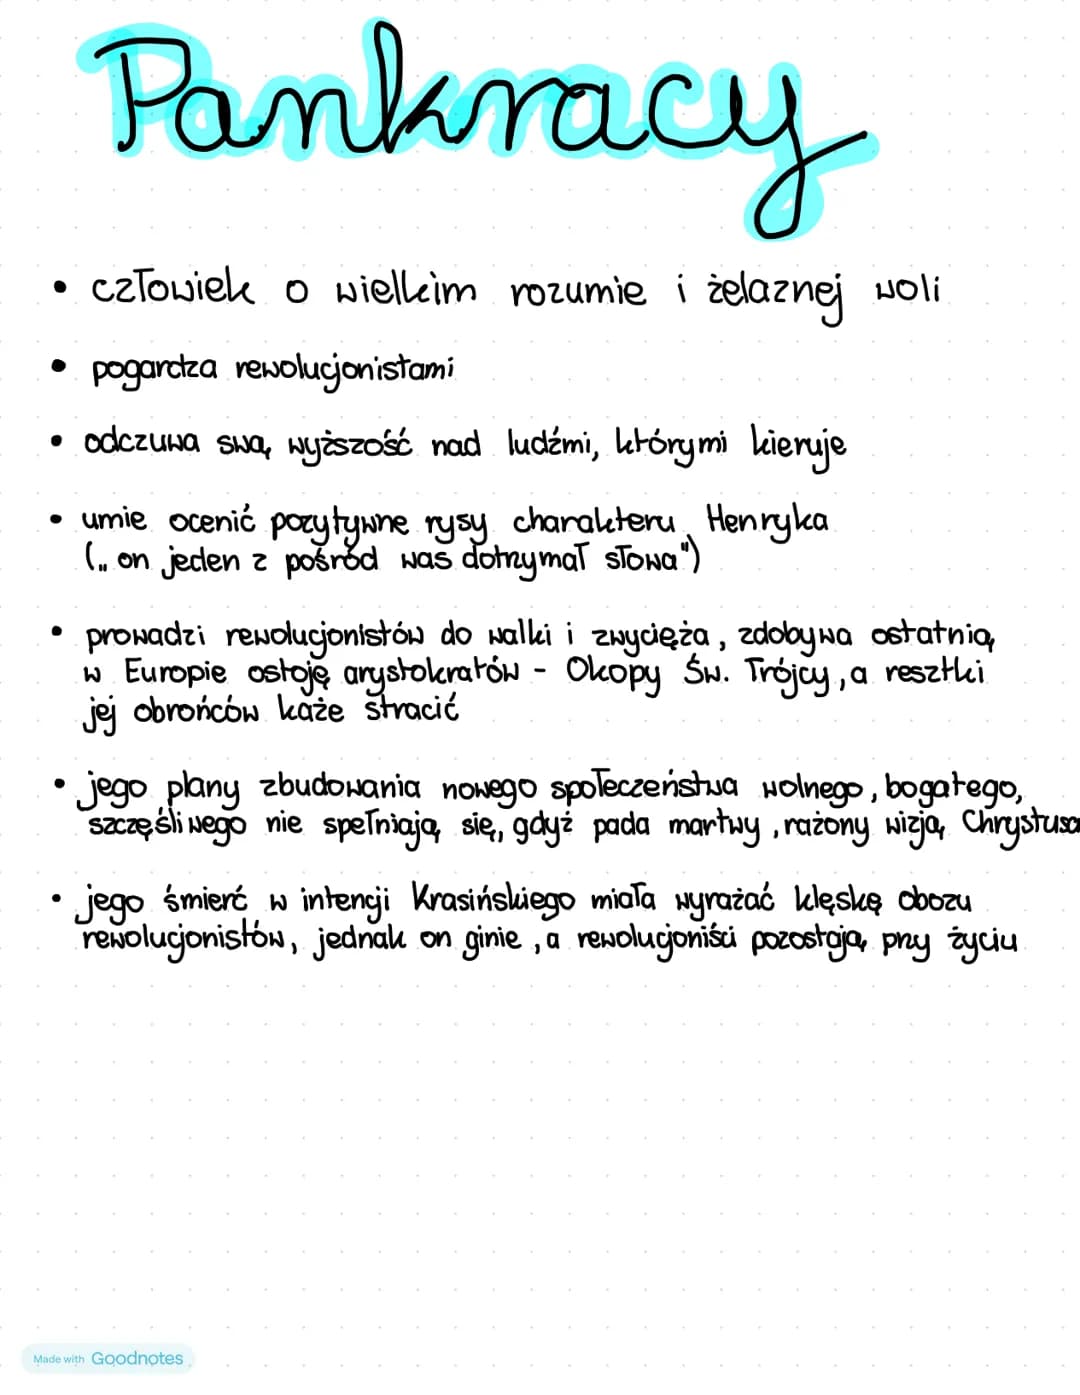 Pankracy
• człowiek o wielkim rozumie i żelaznej woli
• pogardza rewolucjonistami
• odczuwa swą wyższość nad ludźmi, którymi kieruje
• umie ocenić pozytywne rysy charakteru Henryka
(„ on jeden z pośród was dotrzymał słowa")
• prowadzi rewolucjonistów do walki i zwycięża, zdobywa ostatnią
w Europie ostoję arystokratów - Okopy Św. Trójcy, a resztki
jej obrońców każe stracić
• jego plany zbudowania nowego społeczeństwa wolnego, bogatego,
szczęśliwego nie spełniają się, gdyż pada martwy, rażony wizją Chrystusa
• jego śmierć w intencji Krasińskiego miała wyrażać klęskę obozu
rewolucjonistów, jednak on ginie, a rewolucjoniści pozostają przy życiu
Made with Goodnotes